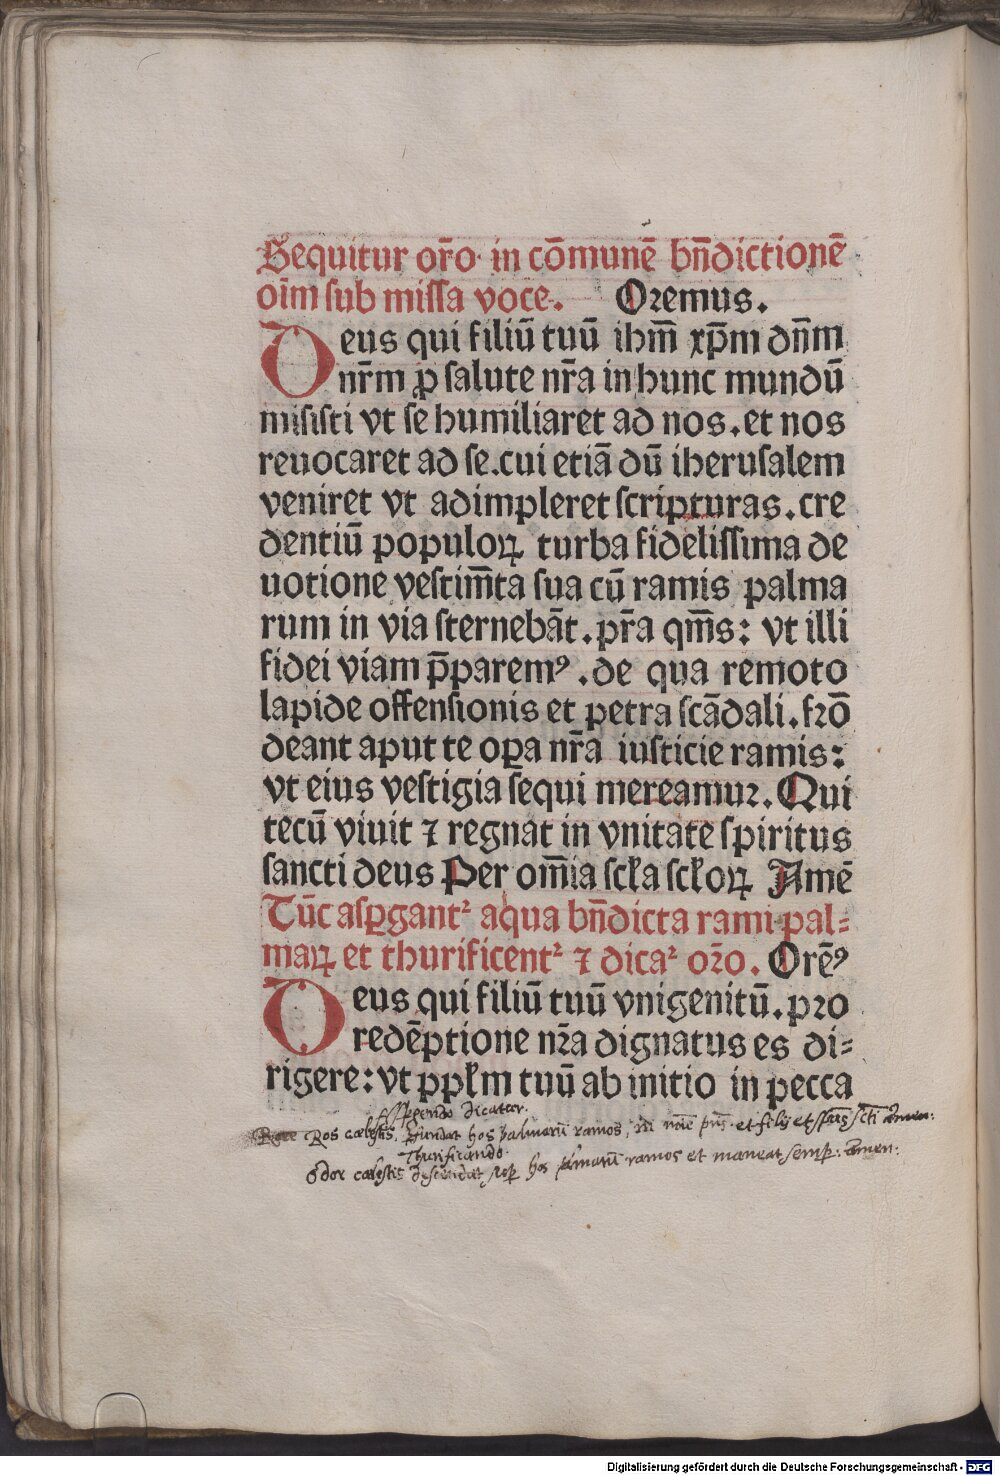 Sequitur or̄o in cōmunē bn̄dictionē
oīm sub missa voce. Oremus.
Deus qui filiū tuū ihm̄ xp̄m dn̄m
nr̄m ꝓ salute nr̄a in hunc mundū
misisti vt se humiliaret ad nos. et nos
reuocaret ad se. cui etiā dū iherusalem
veniret vt adimpleret scripturas. cre
dentiū populoꝝ turba fidelissima de
uotione vestim̄ta sua cū ramis palma
rum in via sternebāt. pr̄a qm̄s: vt illi
fidei viam p̄paremꝰ. de qua remoto
lapide offensionis et petra scādali. frō
deant aput te oꝑa nr̄a iusticie ramis:
vt eius vestigia sequi mereamur. Qui
tecū viuit ⁊ regnat in vnitate spiritus
sancti deus Per om̄ia scl̄a scl̄oꝝ Amē
Tūc asꝑgantᷣ aqua bn̄dicta rami pal-
maꝝ et thurificentᷣ ⁊ dicaᷣ or̄o. Orēꝰ
Deus qui filiū tuū vnigenitū. pro
redēptione nr̄a dignatus es di-
rigere: vt ppl̄m tuū ab initio in pecca
Asspergendo dicatur.
Ros cælestis, fundat hos palmarū ramos, in noīe pris et filij et spūs scti Amen:
Thurificando.
Odor cælestis descendat suꝑ hos palmarū ramos et maneat semꝑ: Amen:
Digitalisierung gefördert durch die Deutsche Forschungsgemeinschaft - DFG